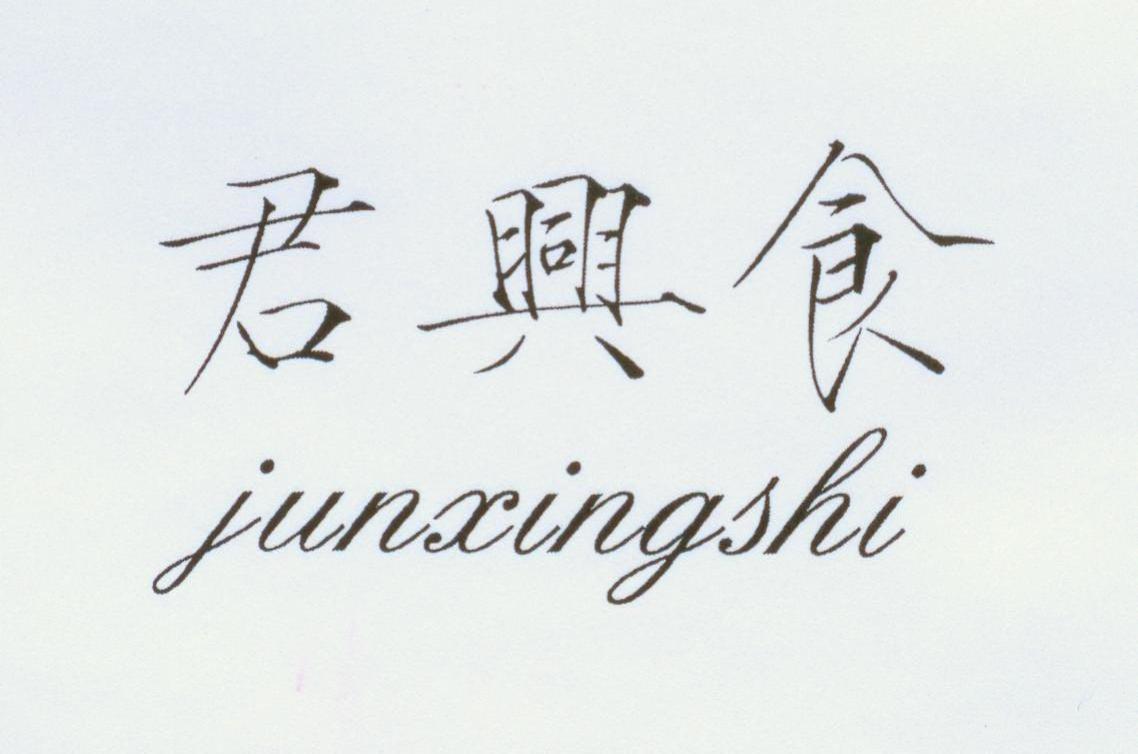 君興食
junxingshi